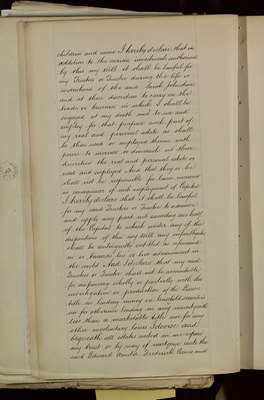 children and issue I hereby declare that in
addition to the various investments authorized
by this my will it shall be lawful for
my Trustees or Trustee during the life or
widowhood of the said Sarah Johnstone
and at their discretion to carry on the
trade or business in which I shall be
engaged at my death and to use and
employ for that purpose such part of
my real and personal estate as shall
be then used or employed therein with
power to increase or diminish at their
discretion the real and personal estate so
used and employed And that they or he
shall not be responsible for losses incurred
in consequence of such employment of Capital
I hereby declare that it shall be lawful
for my said Trustees or Trustee to advance
and apply any part not exceeding one half
of the Capital to which under any of the
dispositions of this my will any infant
shall be contingently entitled as aforesaid
in or towards his or her advancement in
the world And I declare that my said
Trustees or Trustee shall not be accountable
for dispensing wholly or partially with the
investigation or production of the lessors
title on lending money on leasehold securities
or for otherwise lending on any security with
less than a marketable title nor for any
other involuntary losses I devise and
bequeath all estates vested in me upon
any trust or by way of mortgage unto the
said Edward Frederick and